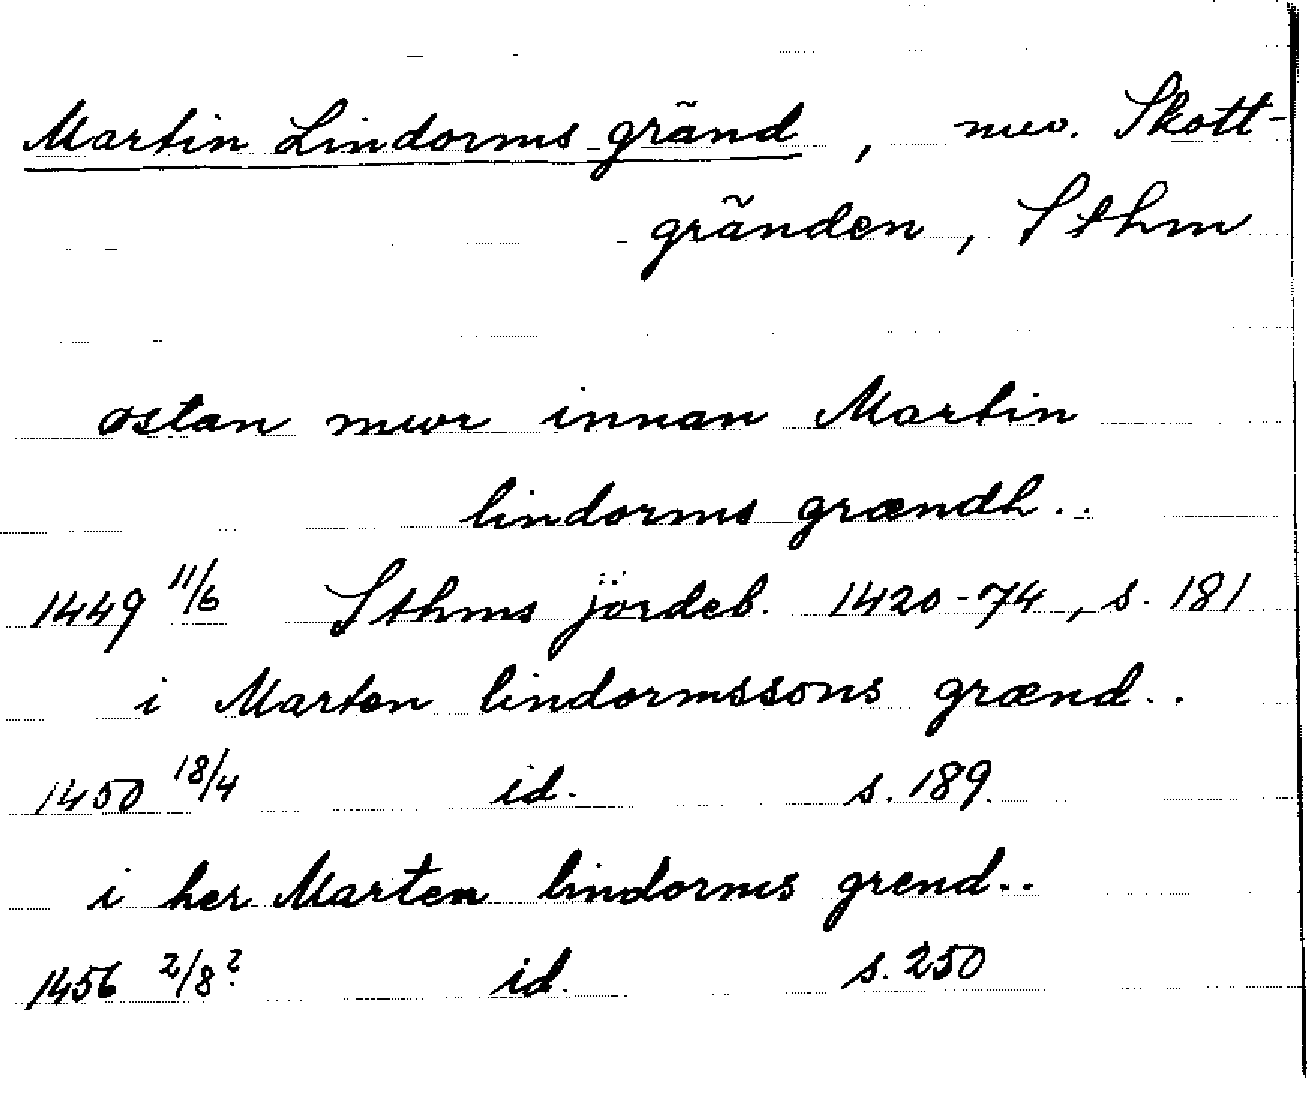 Martin Lindorms gränd, nuv. Skott-
gränden, Sthm
østan mwr innan Martin
lindorms grændh..
1449 11/6 Sthms jördeb. 1420-74, s. 181
i Marten lindormssons grænd..
1450 18/4 id. s. 189.
i her Marten lindorms grend..
1456 2/8? id. s. 250